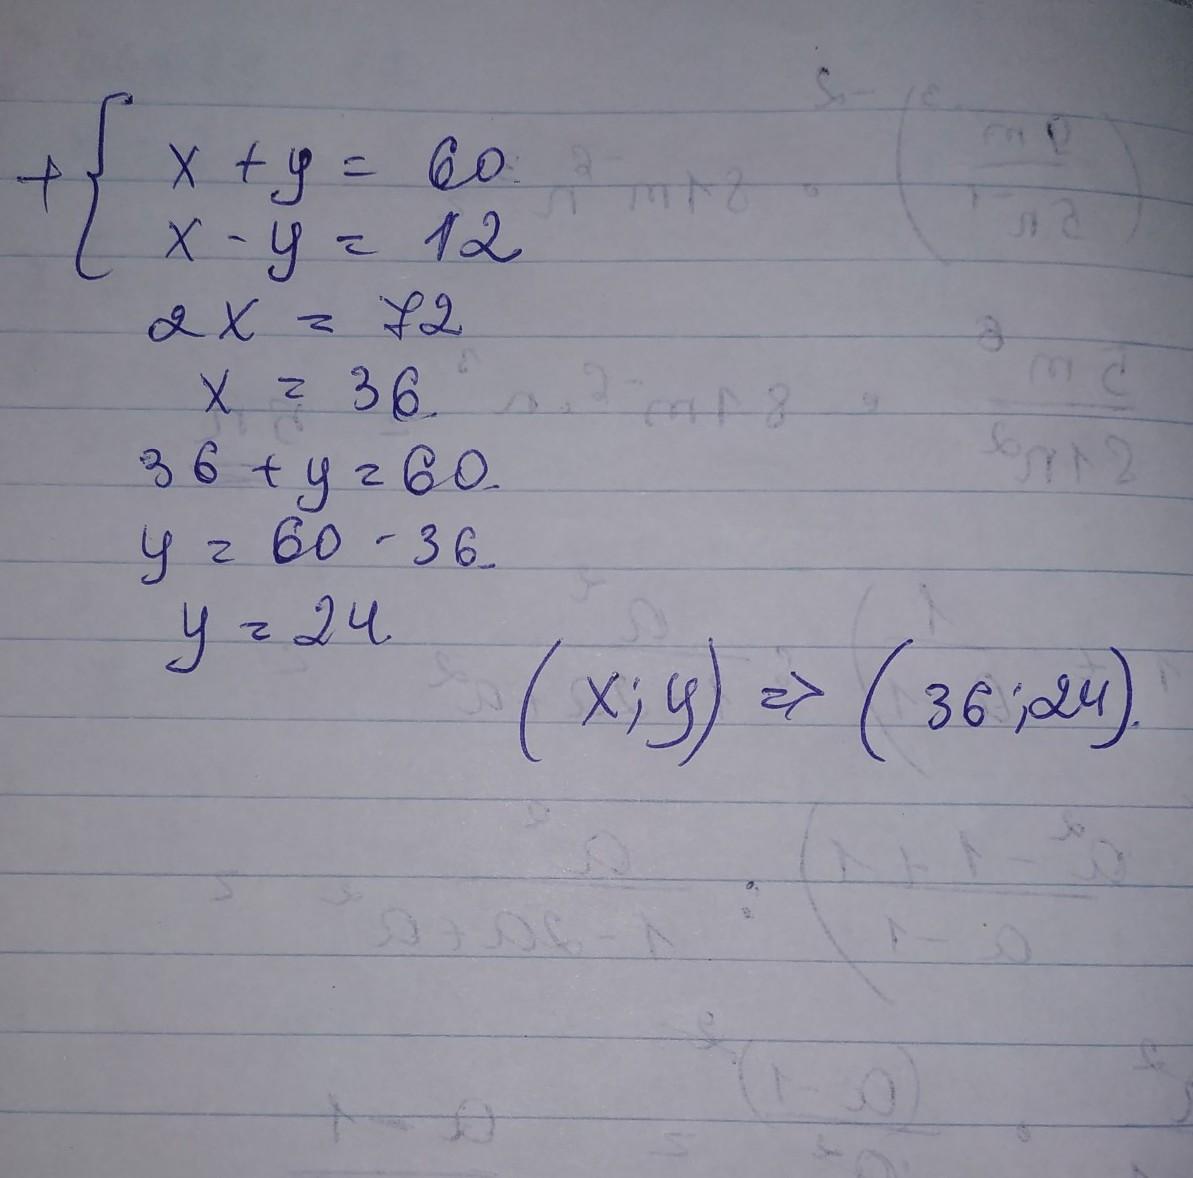 + { x + y = 60
x - y = 12
2x = 72
x = 36
36 + y = 60
y = 60 - 36
y = 24
(x; y) => (36; 24).